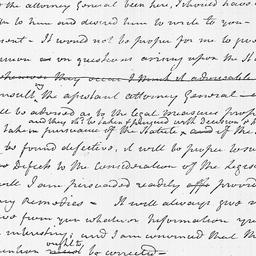 the attorney General been here, I should have
to him and desired him to write to you -
sent - It would not be proper for me to
on questions arising upon the
whenever they occur I think it adviseable
consult the assistant attorney General -
be advised as to the legal measures
and they
taken in pursuance of the Statute, and if the
be found defective, it will be proper
Defect to the consideration of the Legis
I am persuaded readily provide
any Remedies - It will always give
from you whatever Information
interesting; and I am convinced that
ought to
must be corrected -